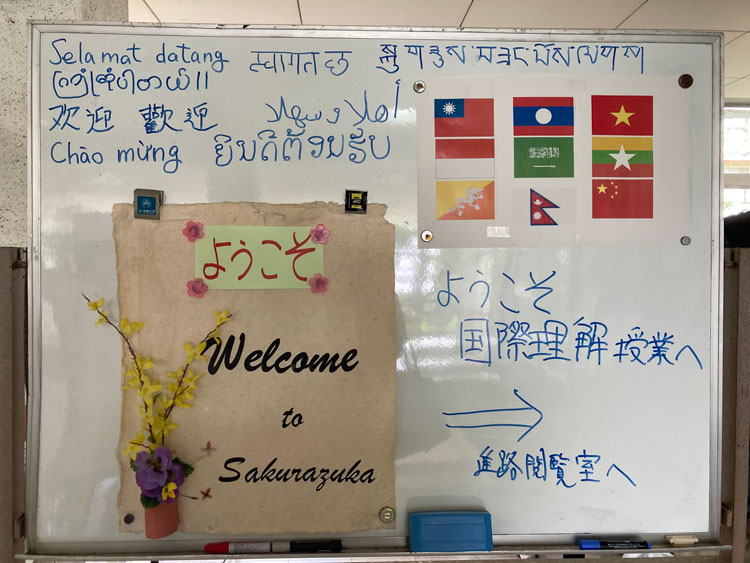 Selamat datang स्वागत छ
ကြိုဆိုပါတယ်။
欢迎 歡迎 أهلا وسهلا
Chào mừng ຍິນດີຕ້ອນຮັບ
ようこそ
Welcome
to
Sakurazuka
ようこそ
国際理解授業へ
進路閲覧室へ